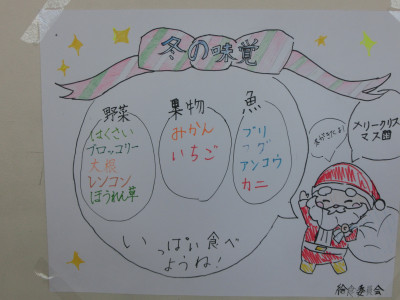 冬の味覚
野菜
はくさい
ブロッコリー
大根
レンコン
ほうれん草
果物
みかん
いちご
魚
ブリ
フグ
アンコウ
カニ
いっぱい食べ
ようね!
メリークリス
マス
給食委員会